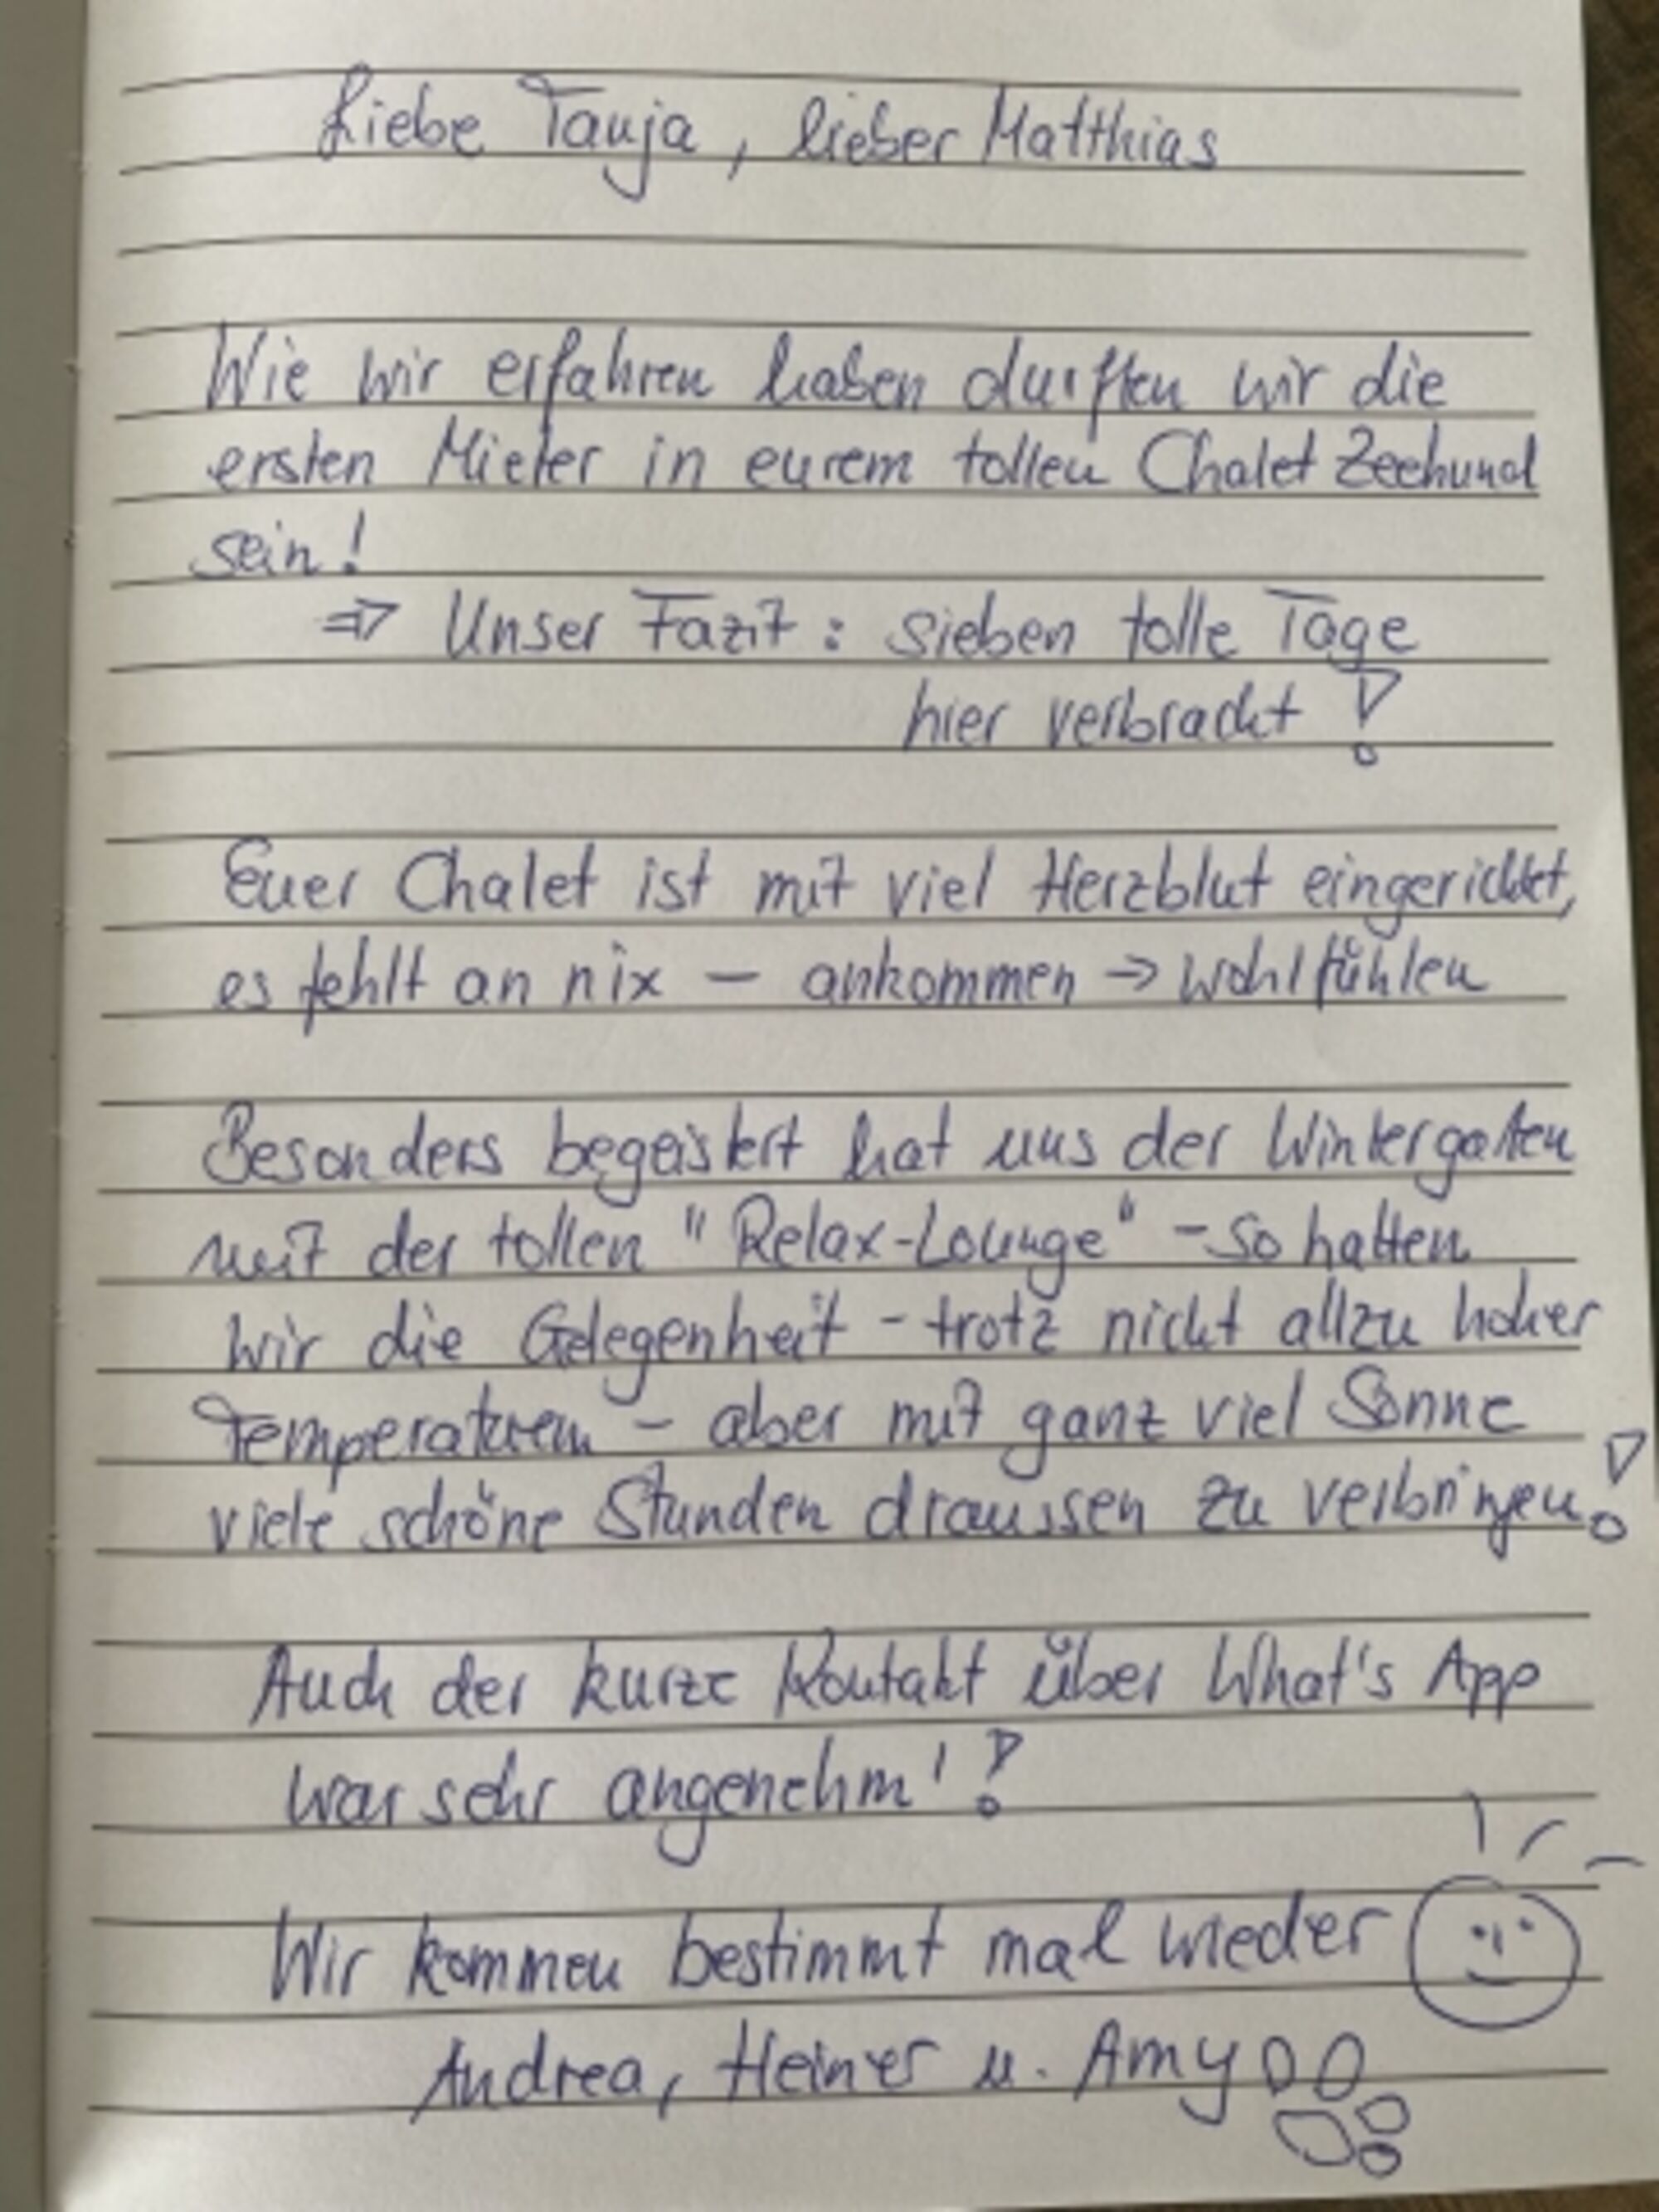 Liebe Tanja, lieber Matthias
Wie wir erfahren haben durften wir die
ersten Mieter in eurem tollen Chalet Zeehund
sein!
⇒ Unser Fazit: sieben tolle Tage
hier verbracht!
Euer Chalet ist mit viel Herzblut eingerichtet,
es fehlt an nix – ankommen → wohlfühlen
Besonders begeistert hat uns der Wintergarten
mit der tollen "Relax-Lounge" - so hatten
wir die Gelegenheit - trotz nicht allzu hoher
Temperaturen - aber mit ganz viel Sonne
viele schöne Stunden draussen zu verbringen!
Auch der kurze Kontakt über What's App
war sehr angenehm'!
Wir kommen bestimmt mal wieder
Andrea, Heiner u. Amy